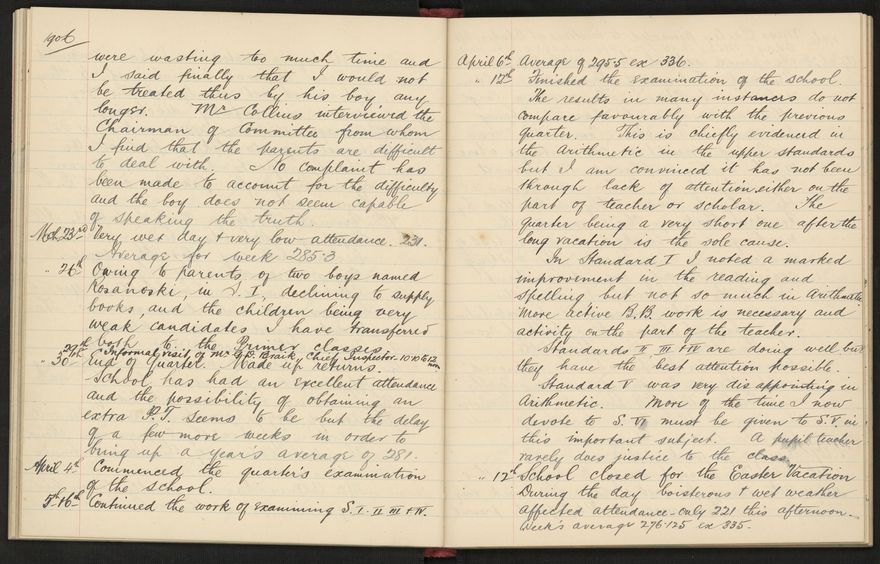 1906
were wasting too much time and
I said finally that I would not
be treated thus by his boy any
longer. Mr Collins interviewed the
Chairman of Committee from whom
I find that the parents are difficult
to deal with. No complaint has
been made to account for the difficulty
and the boy does not seem capable
of speaking the truth.
Mch 23rd Very wet day & very low attendance. 231.
Average for week 285.3
" 26th Owing to parents of two boys named
Rosanoski, in S. I, declining to supply
books, and the children being very
weak candidates I have transferred
both to the Primer classes.
29th Informal visit of Mr G.D. Braik, Chief Inspector. 10.10 to 12 noon
" 30th End of Quarter. Made up returns.
School has had an excellent attendance
and the possibility of obtaining an
extra P.T. seems to be but the delay
of a few more weeks in order to
bring up a year's average of 281.
April 4th Commenced the quarter's examination
of the school.
5th & 6th Continued the work of examining S. I. II III & IV.
April 6th Average of 295.5 ex 336.
" 12th Finished the examination of the school.
The results in many instances do not
compare favourably with the previous
quarter. This is chiefly evidenced in
the Arithmetic in the upper standards
but I am convinced it has not been
through lack of attention either on the
part of teacher or scholar. The
quarter being a very short one after the
long vacation is the sole cause.
In Standard I I noted a marked
improvement in the reading and
spelling but not so much in Arithmetic
More active B.B. work is necessary and
activity on the part of the teacher.
Standards II, III & IV are doing well but
they have the best attention possible.
Standard V was very disappointing in
Arithmetic. More of the time I now
devote to S. VI must be given to S. V. in
this important subject. A pupil teacher
rarely does justice to the class.
" 12th School closed for the Easter Vacation
During the day boisterous & wet weather
affected attendance - only 221 this afternoon.
Week's average 276.125 ex 335.